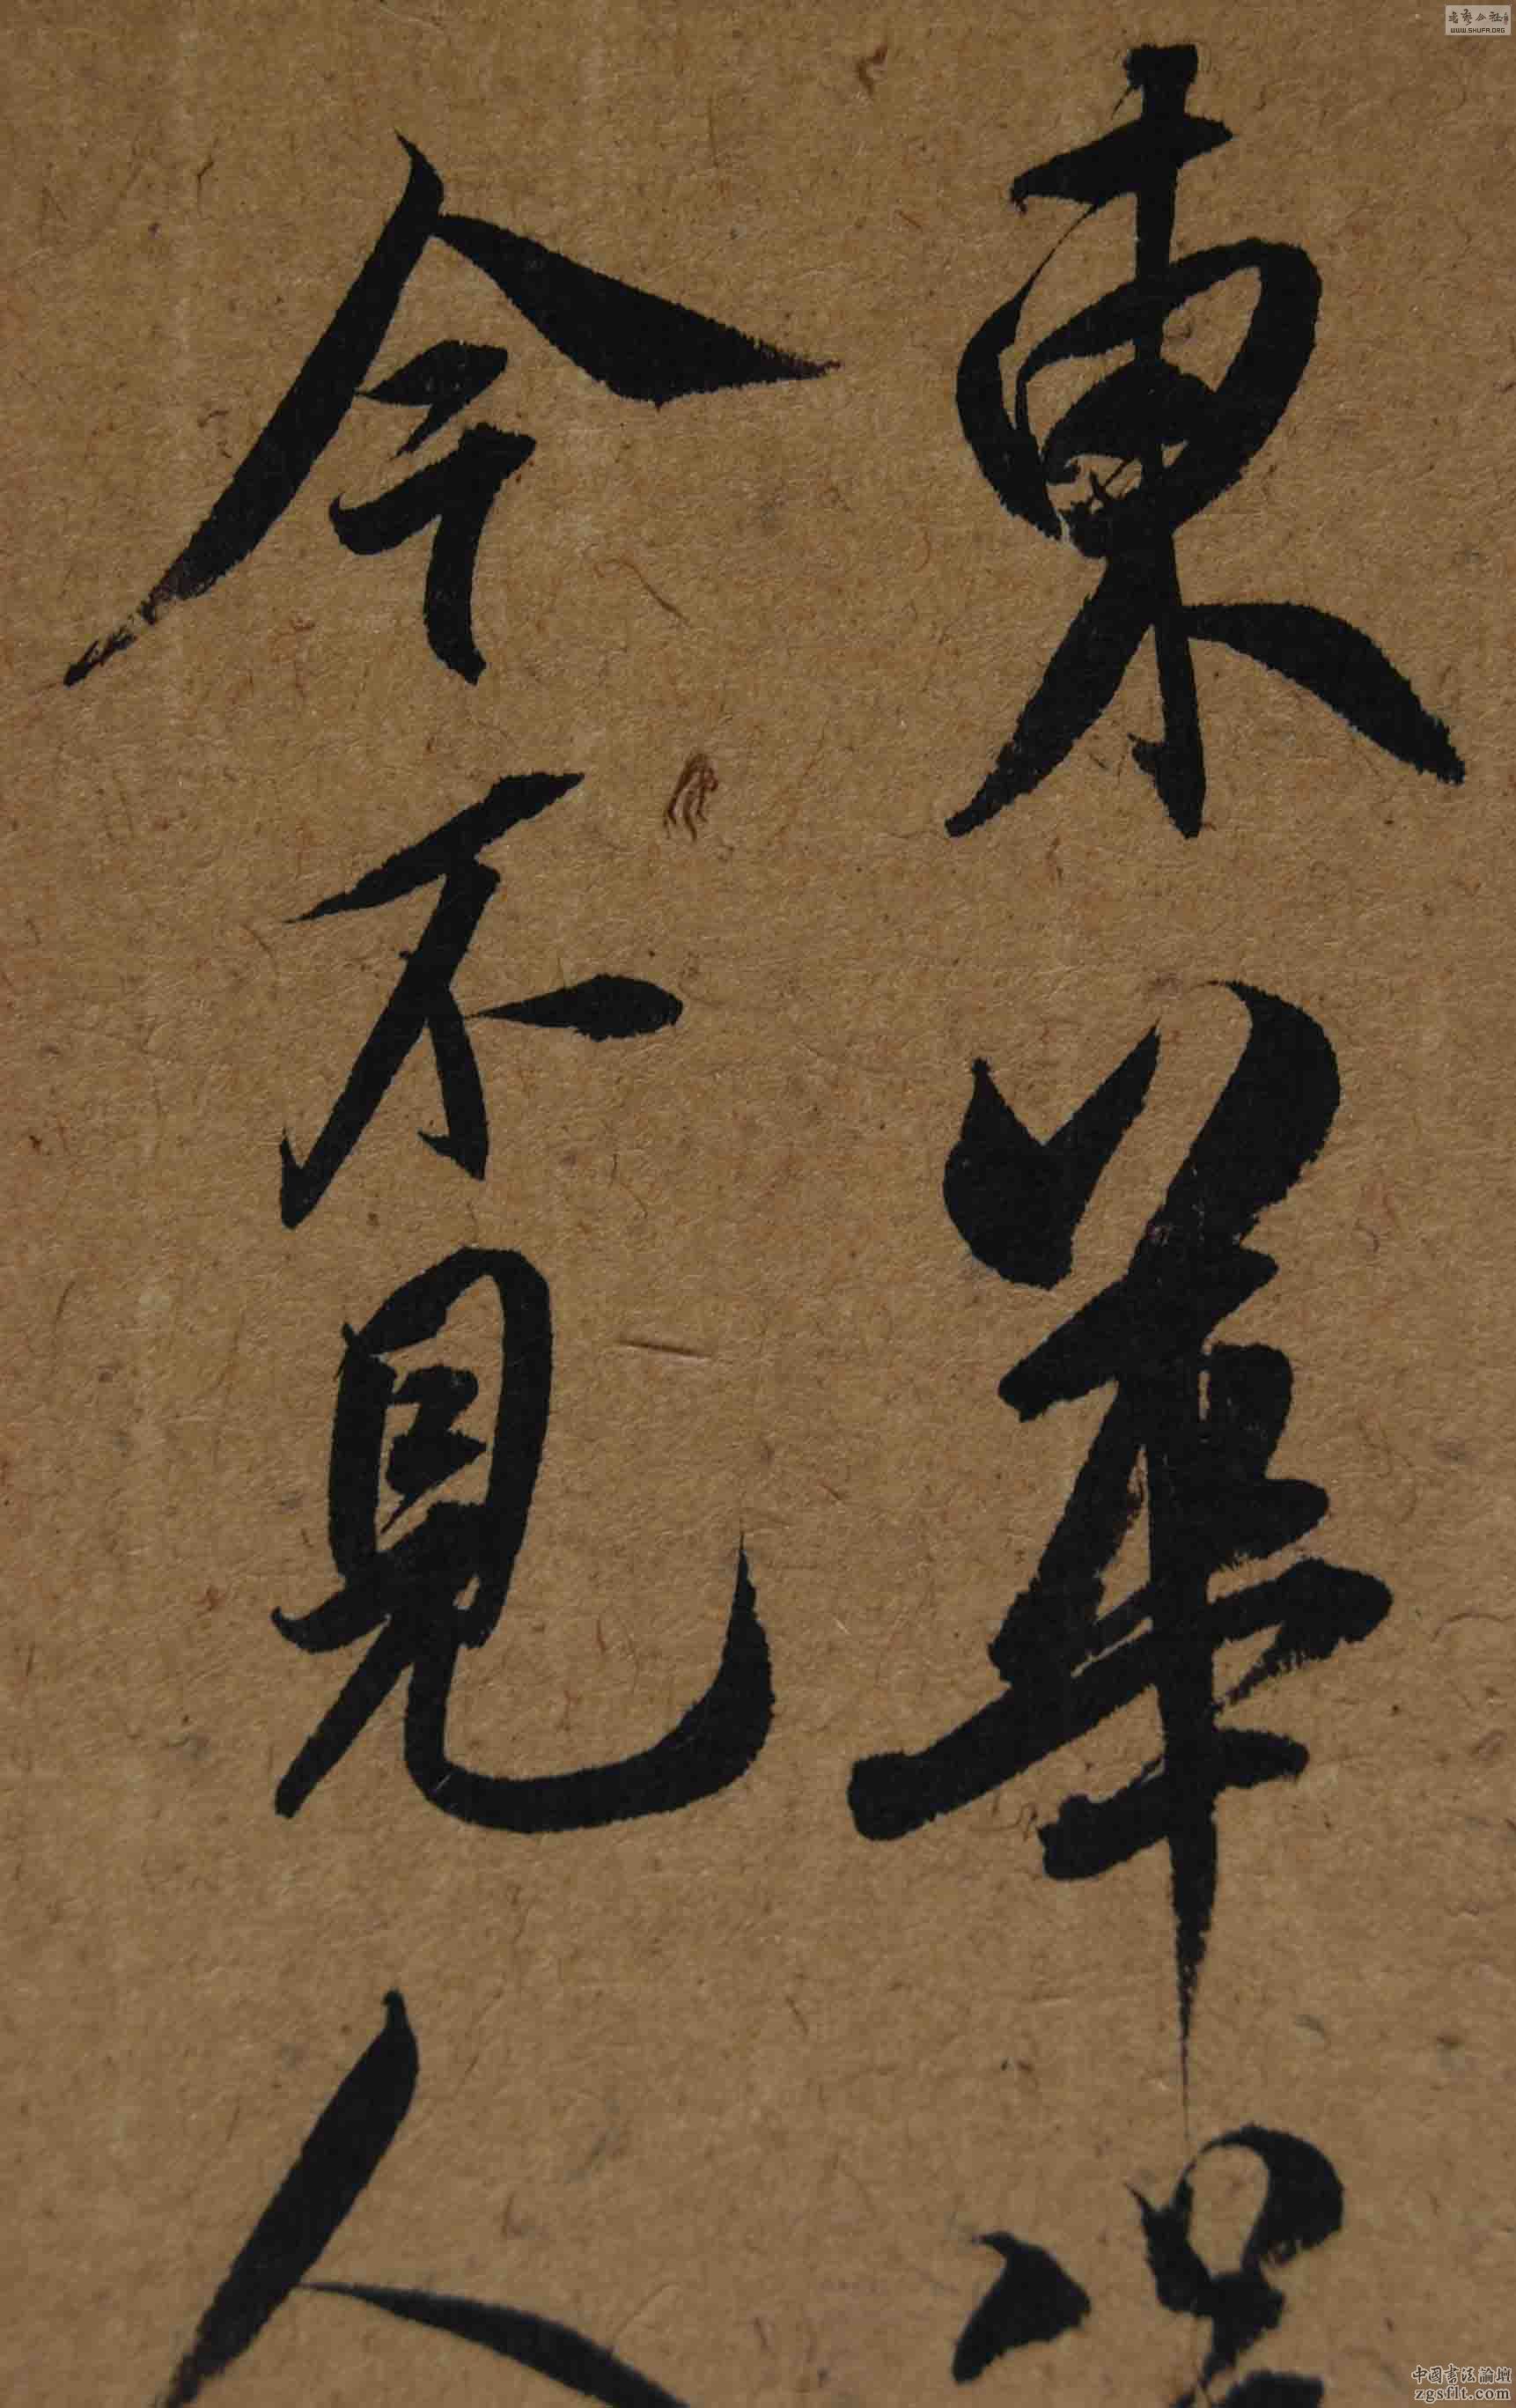 東華
今不見人
書藝公社
WWW.SHUFA.ORG
中國書法論壇
zgsflt.com